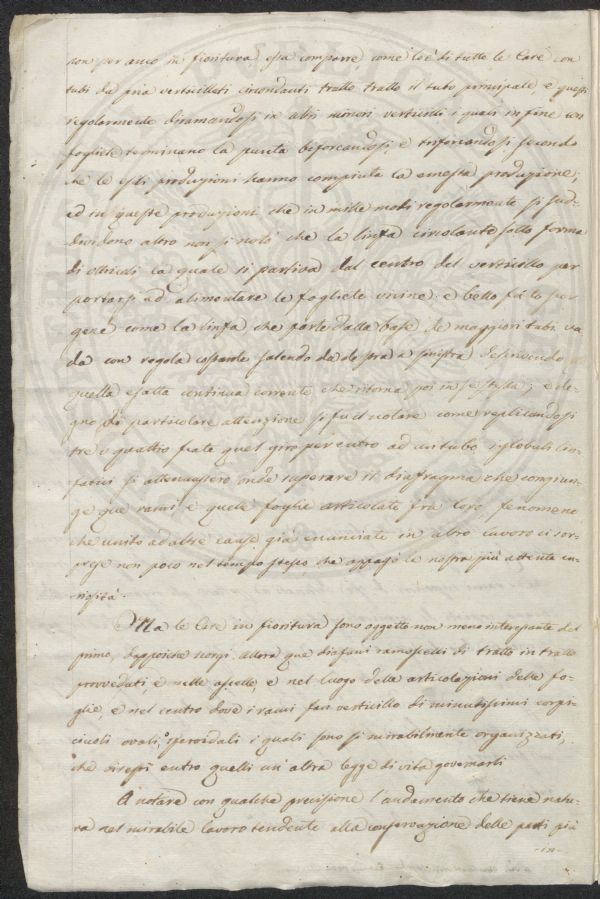 non per anco in fioritura essa comparre come lo è di tutte le Care con
tubi da pria verticillati circondanti tratto tratto il tubo principale e questi
regolarmente diramandosi in altri minori verticilli i quali in fine con
fogliete terminano la punta biforcandosi, e triforcandosi secondo
che le produzioni hanno compiuta la produzione;
ed in queste produzioni che in mille modi regolarmente si sud-
dividono altro non si notò che la linfa circolante sotto forma
di ottricoli la quale si partiva dal centro del verticillo per
portarsi ad alimentare le fogliete vicine, e bello fu lo scor-
gere come la linfa che parte dalla base de maggiori tubi va-
da con regola costante salendo da destra a sinistra descrivendo
quella esatta continua corrente che ritorna poi in se stessa; e de-
gno di particolare attenzione si fu il notare come replicandosi
tre o quattro fiate quel giro per entro ad un tubo i globuli lin-
fatici si attenuassero onde superare il diafragma che congiun-
ge que rami e quelle foglie articolate fra loro, fenomeno
che unito ad altre cause già enunciate in altro lavoro ci sor-
prese non poco nel tempo stesso che appagò la nostra più attenta cu-
riosità.
Ma le Care in fioritura sono oggetto non meno interessante del
primo, dappoichè scorgi allora que diafani ramoscelli di tratto in tratto
provveduti, e nelle ascelle, e nel luogo della articolazioni delle fo-
glie, e nel centro dove i rami fan verticillo di minutissimi corpi-
cciuoli ovali, o sferoidali i quali sono sì mirabilmente organizzati,
che diresti entro quelli un'altra legge di vita governarli
A notare con qualche precisione l'andamento che tiene natu-
ra nel mirabile lavoro tendente alla conservazione delle parti più
-in-